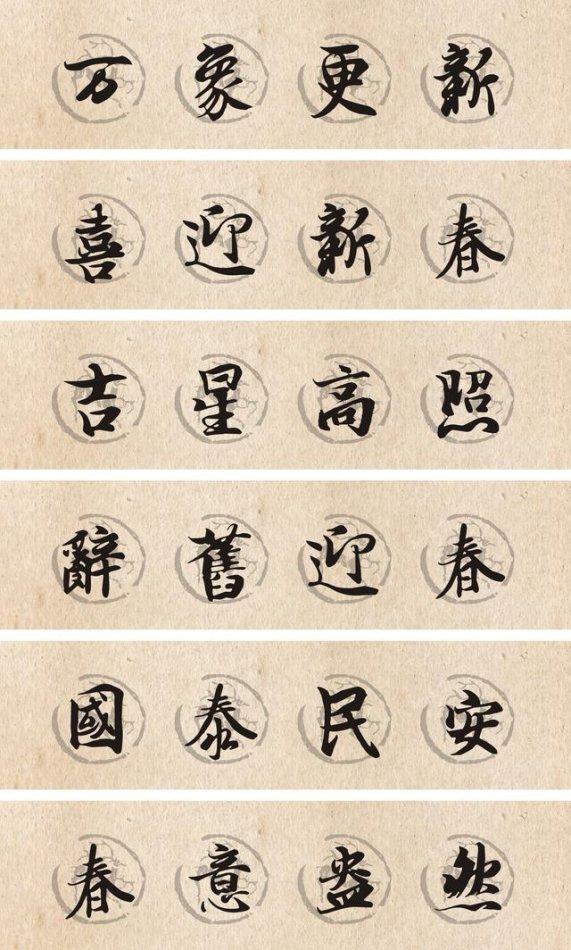 万象更新
喜迎新春
吉星高照
辭舊迎春
國泰民安
春意盎然